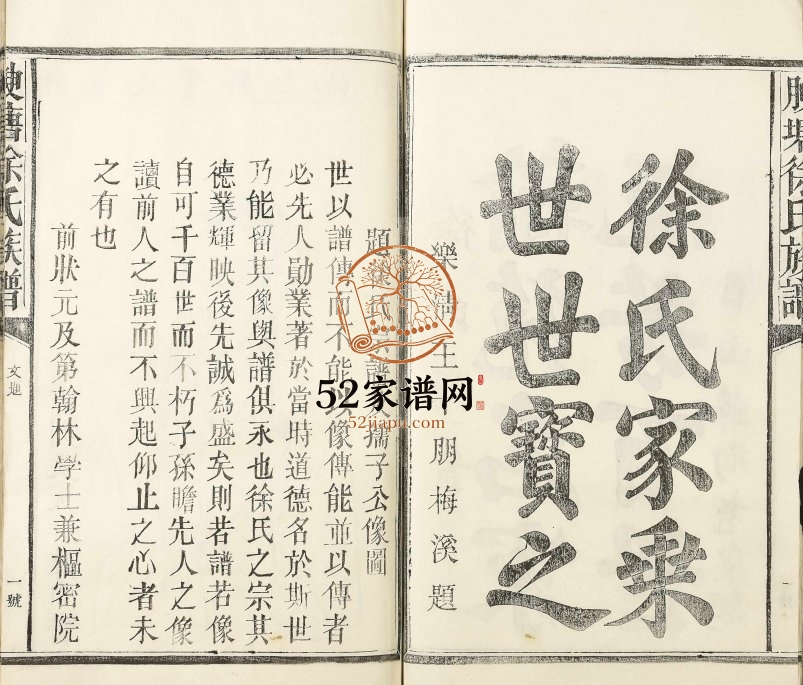 塘徐氏族譜
徐氏家乗
世世寶之
樂清王朋梅溪題
題徐氏譜孺子公像圖
世以譜傳而不能以像傳能並以傳者
必先人勛業著於當時道德名於斯世
乃能留其像與譜俱永也徐氏之宗其
德業輝映後先誠爲盛矣則若譜若像
自可千百世而不朽子孫瞻先人之像
讀前人之譜而不興起仰止之心者未
之有也
前狀元及第翰林學士兼樞密院
腴塘徐氏族譜
文題
一號
52家谱网
52jiapu.com